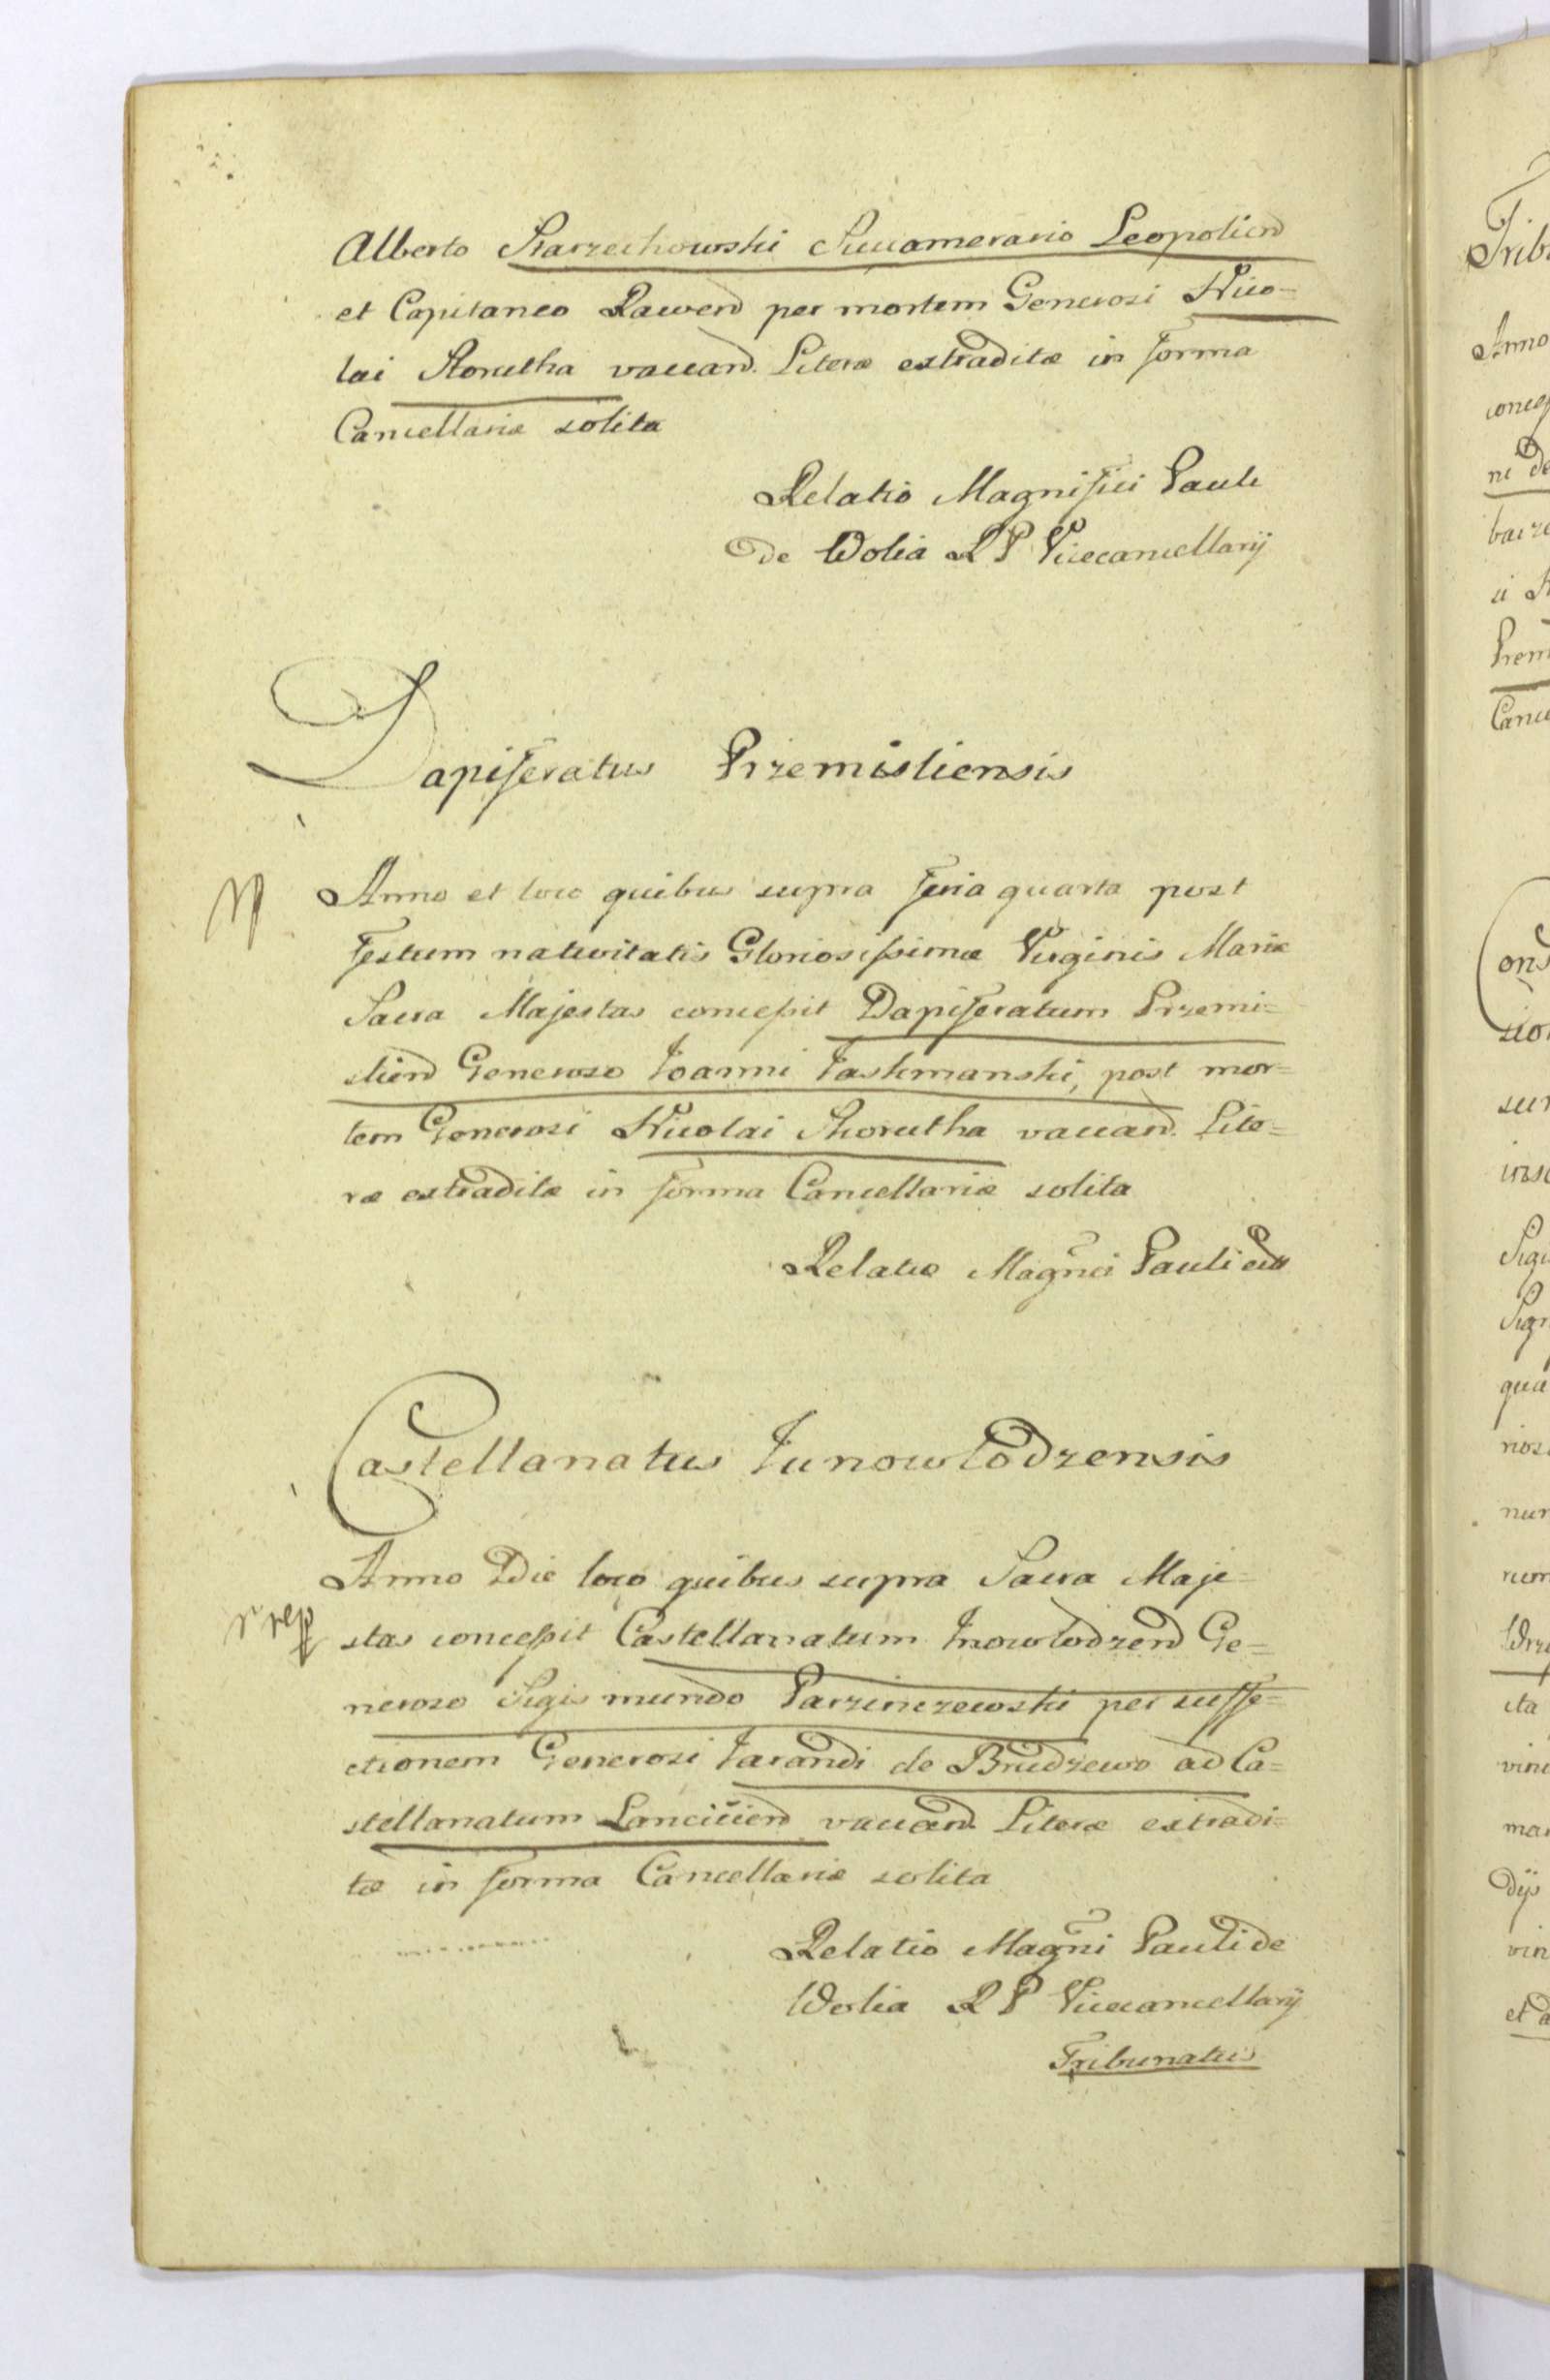 Alberto Starzechowski Succamerario Leopolien
et Capitaneo Rawen per mortem Generosi Nico-
lai Storutha vacand. Literæ extraditæ in forma
Cancellariæ solita
Relatio Magnifici Pauli
de Wolia R P Vicecancellarij
Dapiferatus Przemisliensis
Anno et loco quibus supra feria quarta post
festum nativitatis Gloriosissimæ Virginis Mariæ
Sacra Majestas concessit Dapiferatum Przemi=
slien Generoso Joanni Taskmanski, post mor=
tem Generosi Nicolai Storutha vacand. Lite=
ræ extraditæ in forma Cancellariæ solita
Relatio Magnci Pauli
Castellanatus Junowlodzensis
Anno Die loco quibus supra Sacra Maje=
stas concessit Castellanatum Inowlodzen Ge=
neroso Sigismundo Parzinczewski per suffe=
ctionem Generosi Jarandi de Brudzewo ad Ca=
stellanatum Lancicien vacand. Literæ extradi=
tæ in forma Cancellariæ solita
Relatio Magni Pauli de
Wolia R P Vicecancellarij
Tribunatus